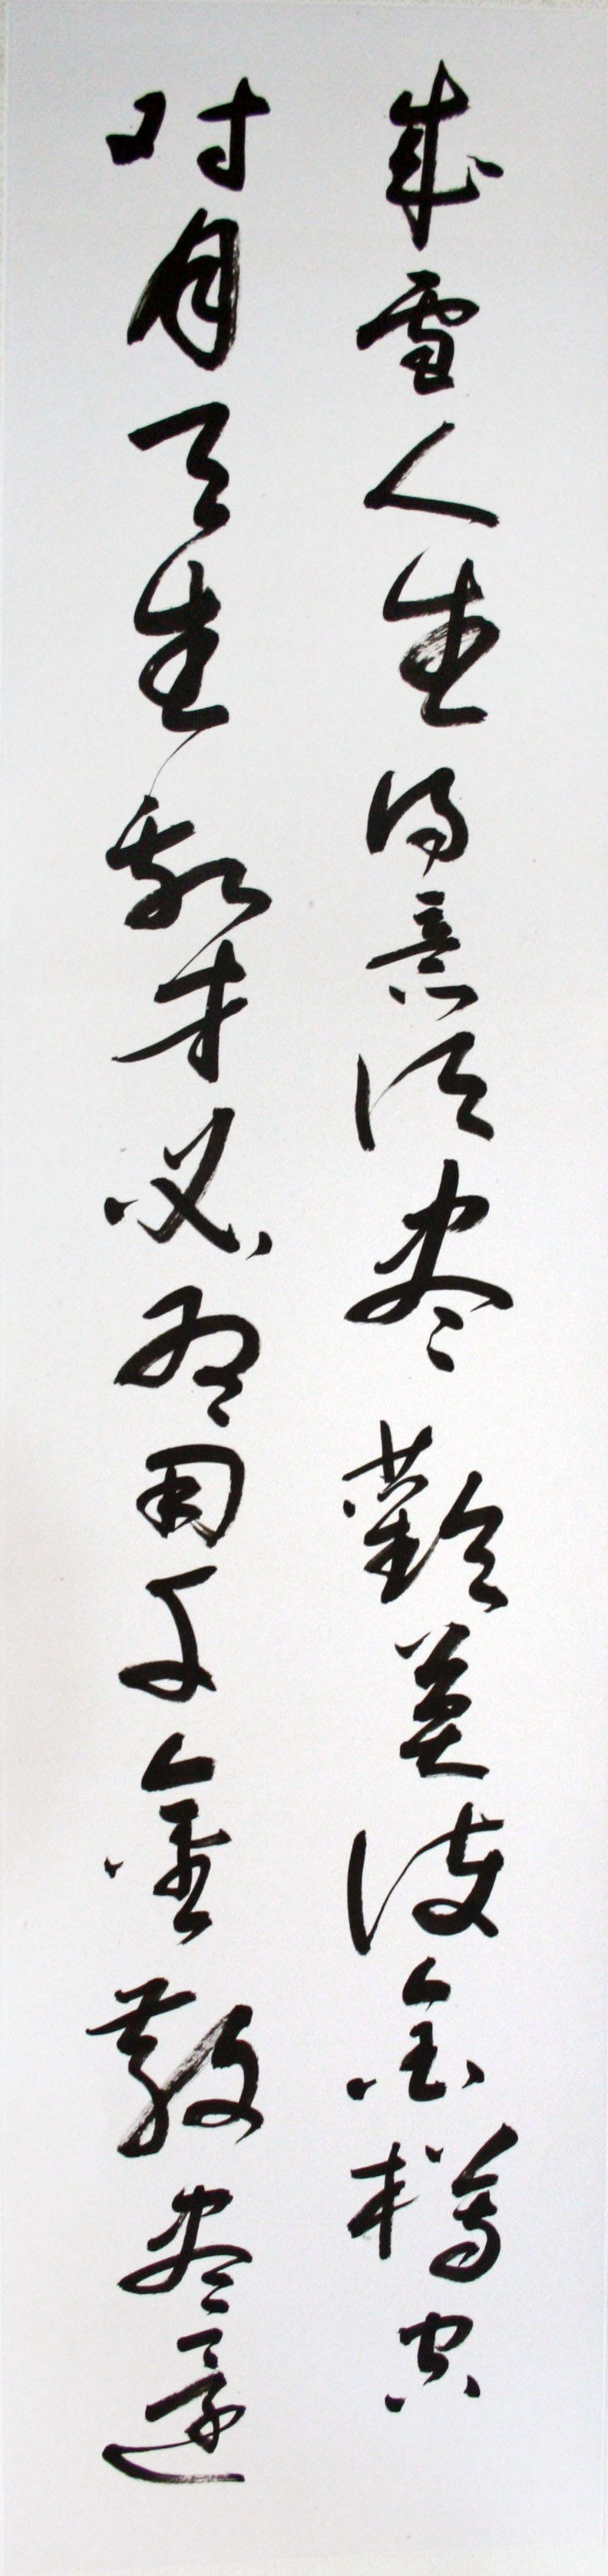 成雪人生得意須盡歡莫使金樽空
对月天生我才必有用千金散盡還